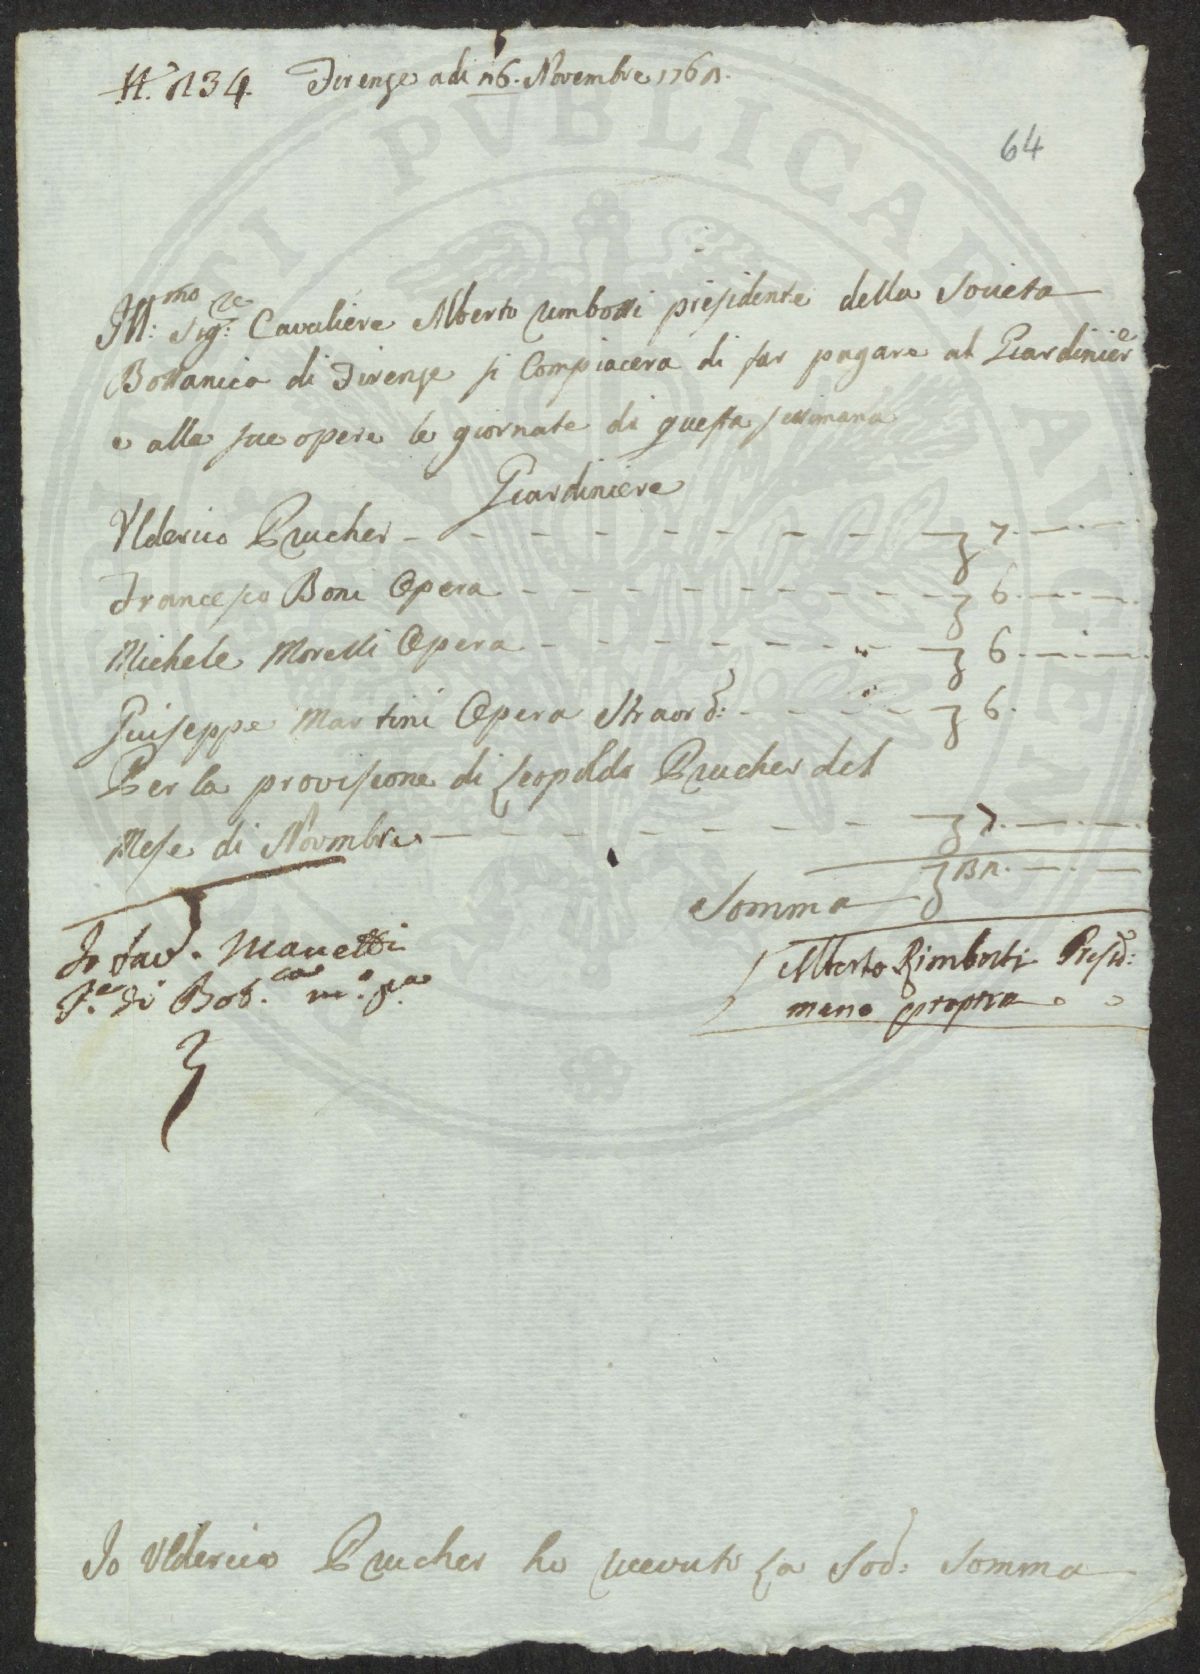 N.° 134. Firenze adi 16. Novembre 1761.
64
Ill:mo Sig:re Cavaliere Alberto Rimbotti presidente della Società
Bottanica di Firenze si Compiacera di far pagare al Giardinier
e alla sue opere le giornate di questa settimana
Giardiniere
Ulderico Prucher - - - - - - - - - 7. — —
Francesco Boni Opera - - - - - - - - 6. — —
Michele Morelli Opera - - - - - - - 6. — —
Guiseppe Martini Opera Straord: - - - - 6.
Per la provisione di Leopoldo Prucher del
Mese di Novmbre - - - - - - - - 7. — —
Somma — 31. — —
Io Sav. Manetti
di Bot.ca m.o p.a
Alberto Rimbotti Presid:
mano propria
Io Ulderico Prucher ho ricevuto La Sod: Somma